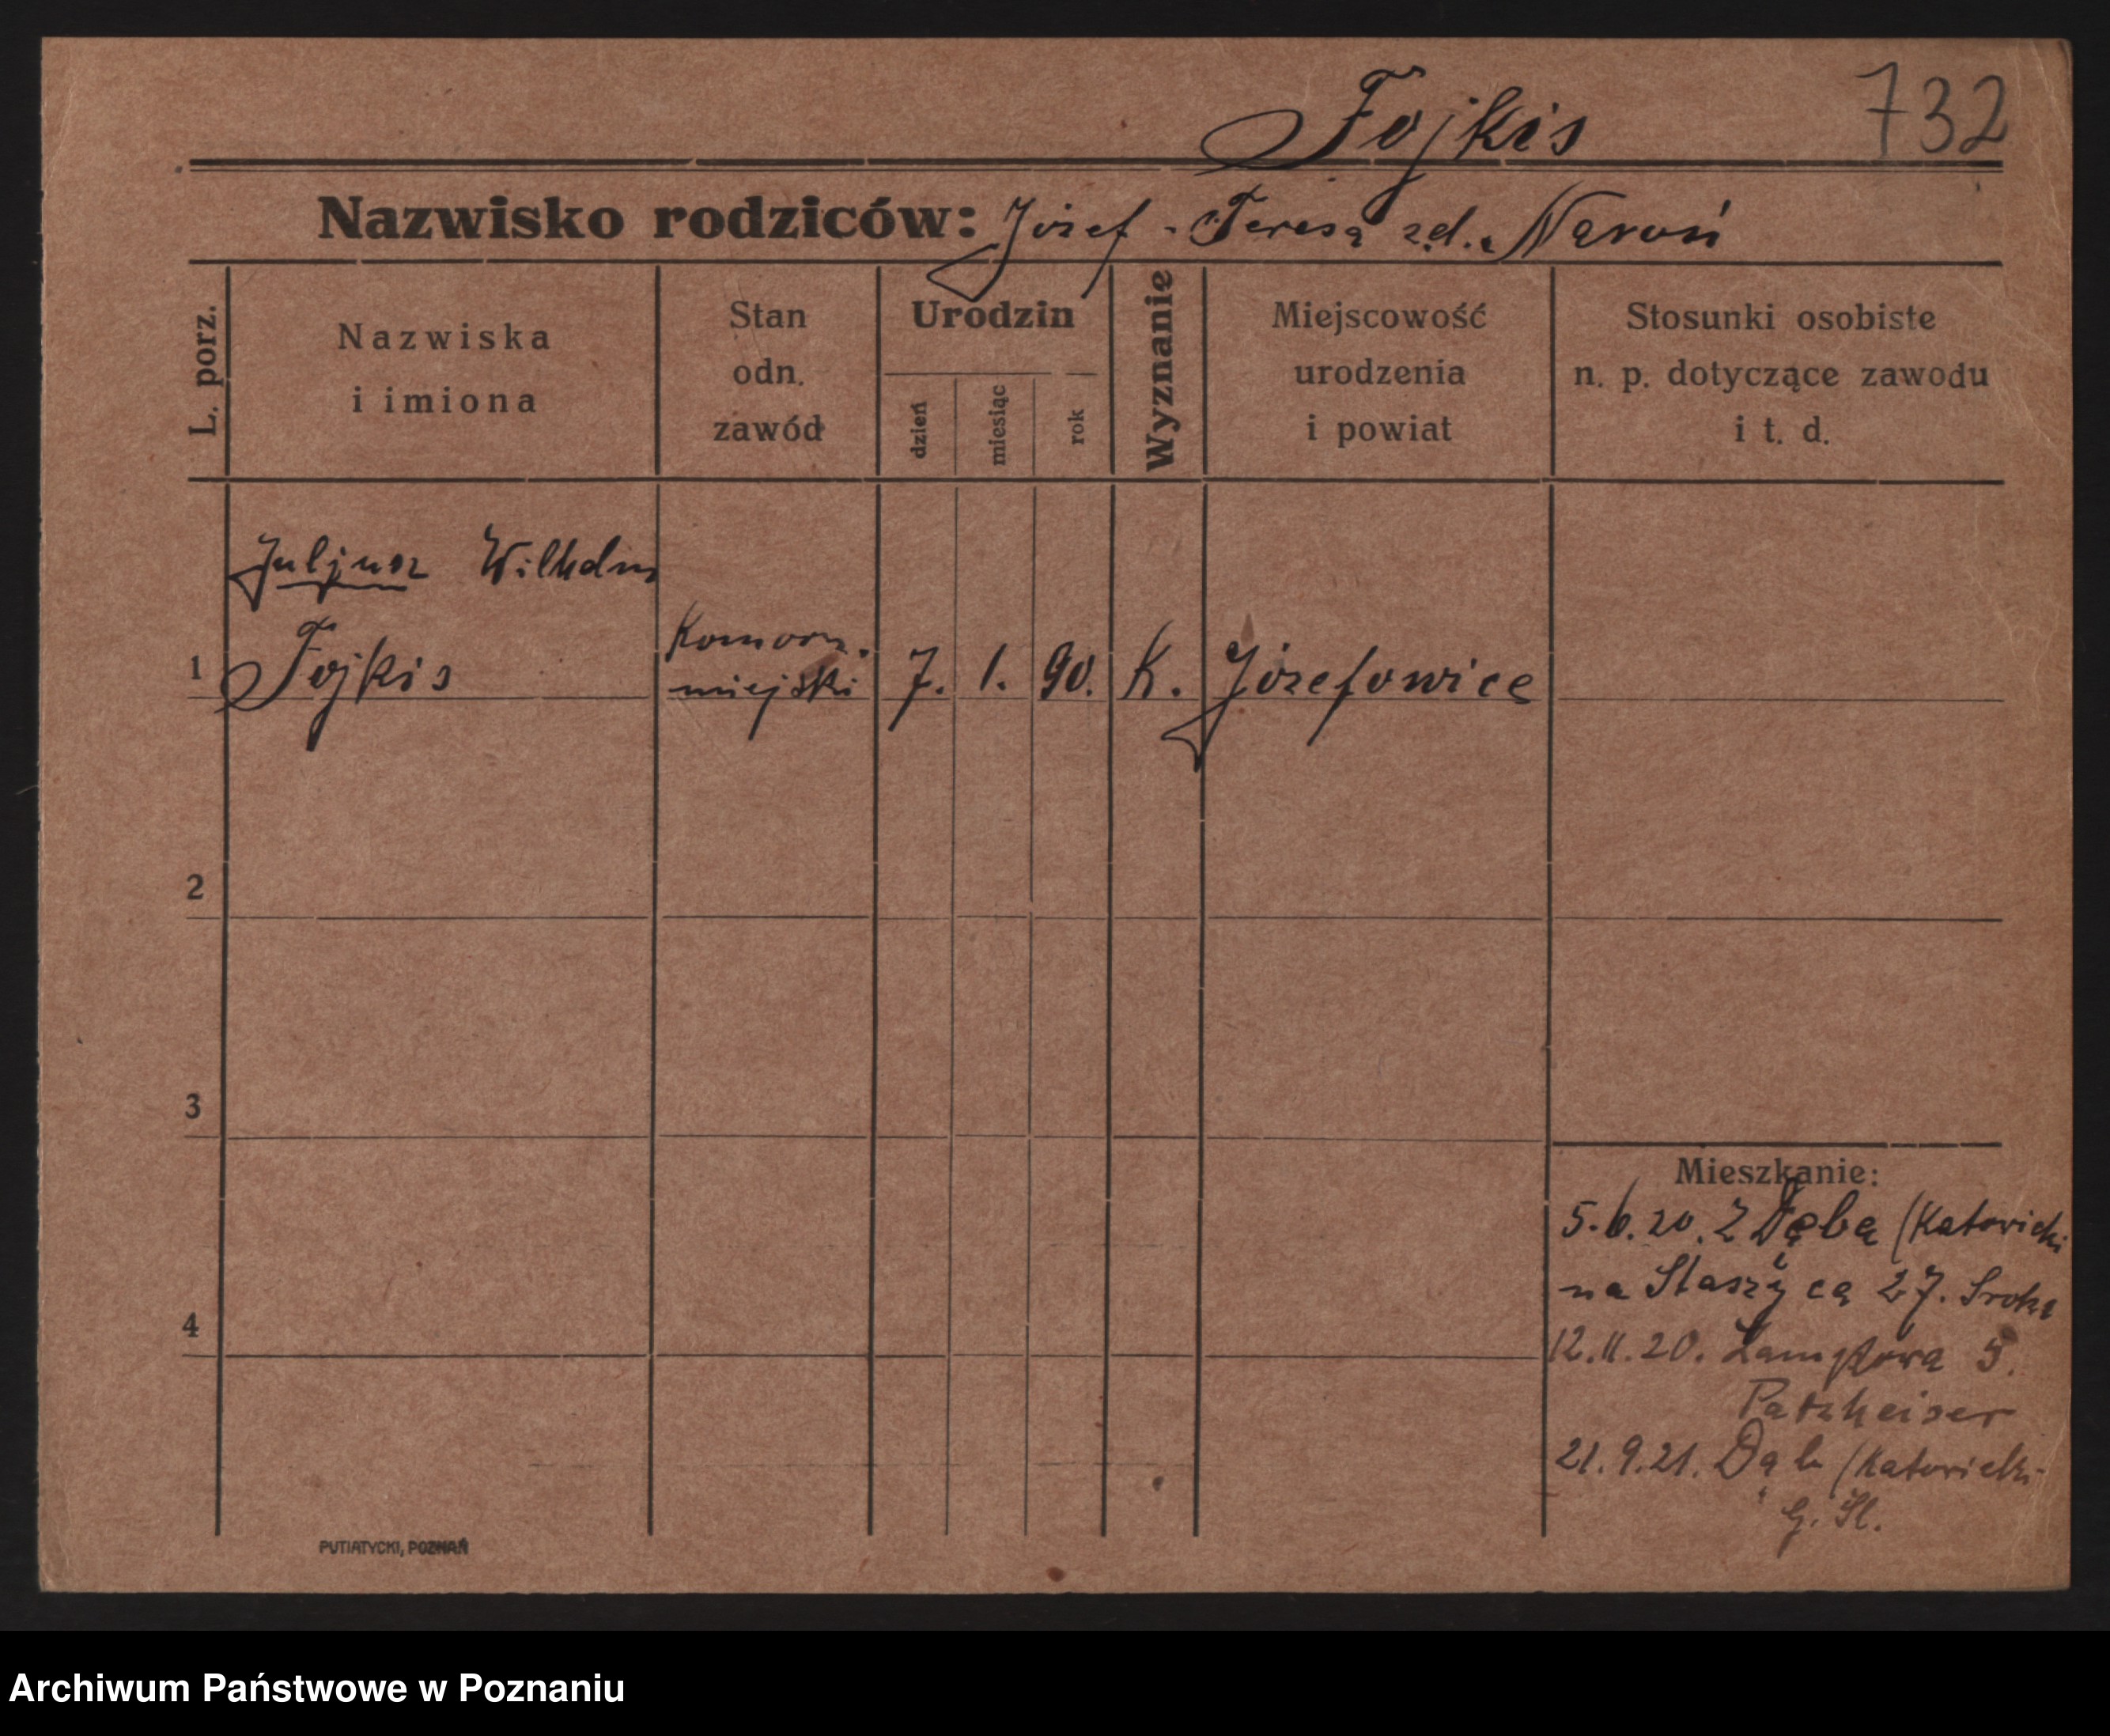 Fojkis 732
Nazwisko rodziców: Józef - Teresa zd. Naroń
L. porz.
Nazwiska
i imiona
Stan
odn.
zawód
Urodzin
dzień
miesiąc
rok
Wyznanie
Miejscowość
urodzenia
i powiat
Stosunki osobiste
n. p. dotyczące zawodu
i t. d.
Juljusz Wilhelm
1 Fojkis Komorn. miejski 7. 1. 90. K. Józefowice
2
3
4
Mieszkanie:
5.6.20. Z Dęba (Katowicki
na Staszyca 27. Sroka
12.11.20. 5.
Patzheiser
21.9.21. Dąb (Katowicki
G. Śl.
PUTIATYCKI, POZNAŃ
Archiwum Państwowe w Poznaniu